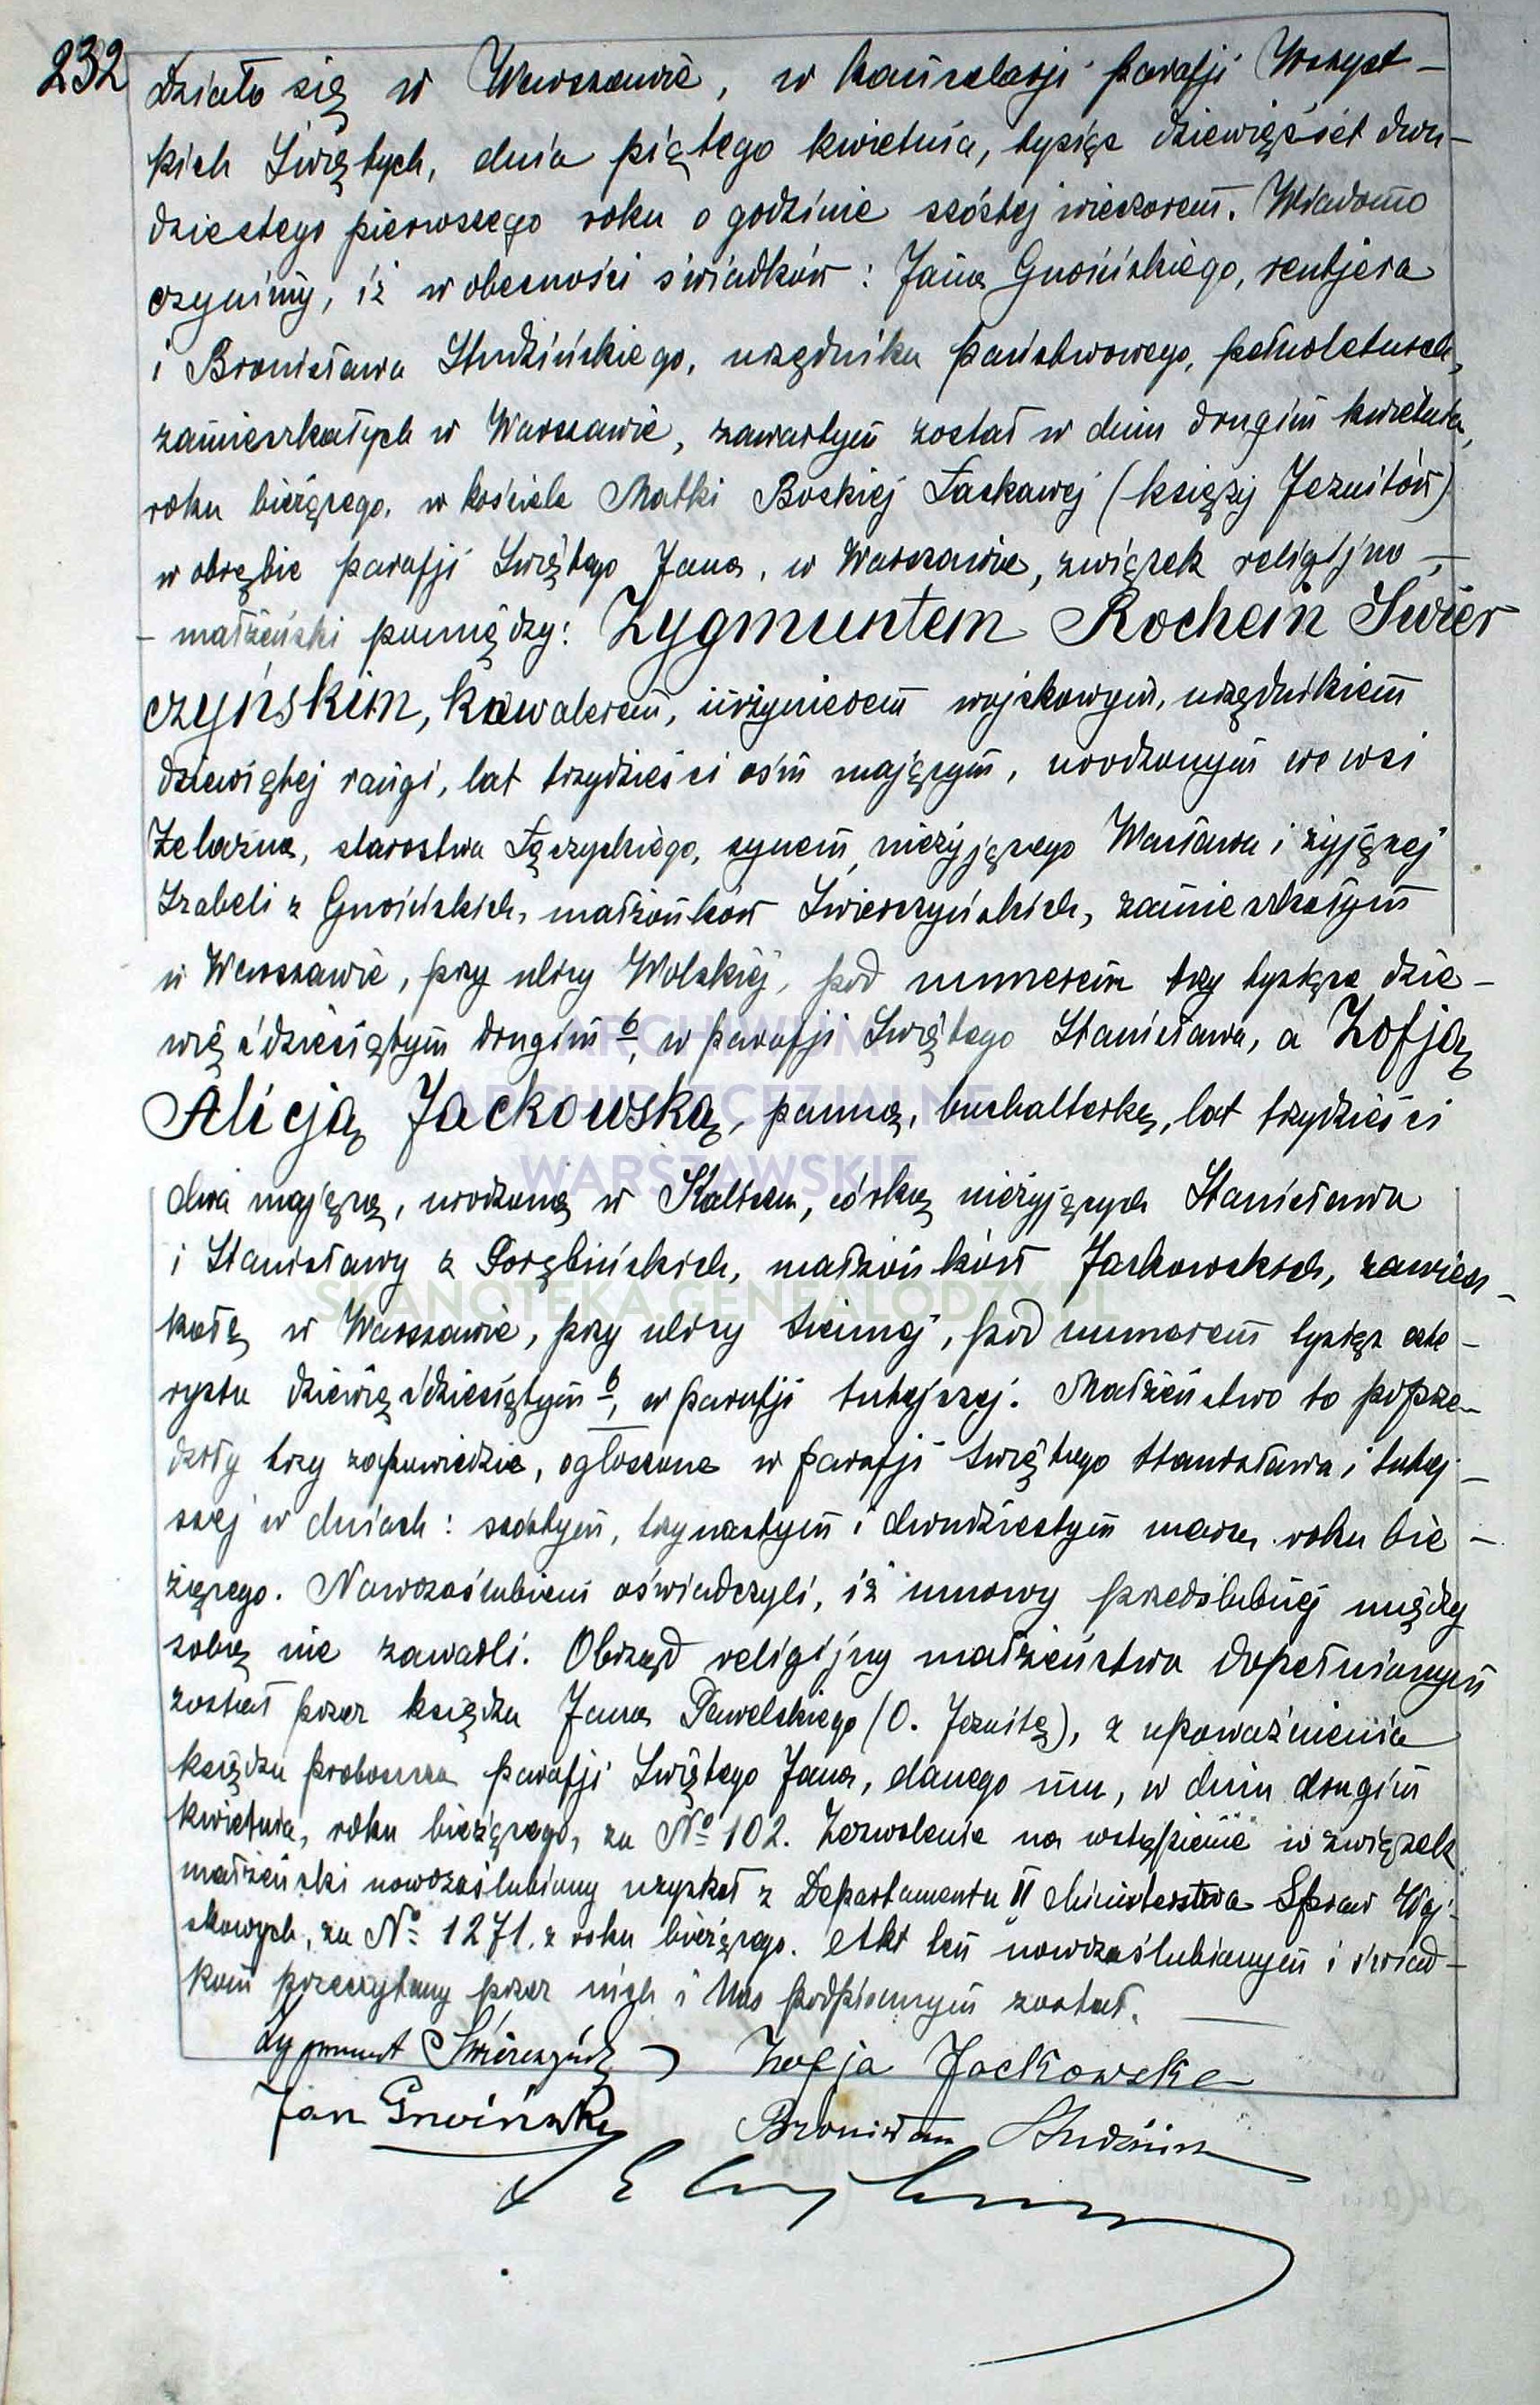 232
Działo się w Warszawie, w kancelarji parafji Wszyst-
kich Świętych, dnia piątego kwietnia, tysiąc dziewięćset dwu-
dziestego pierwszego roku o godzinie szóstej wieczorem. Wiadomo
czynimy, iż w obecności świadków: Jana Gnoińskiego, rentjera
i Bronisława Studzińskiego, urzędnika państwowego, pełnoletnich,
zamieszkałych w Warszawie, zawartym został w dniu drugim kwietnia,
roku bieżącego, w kościele Matki Boskiej Łaskawej (księży Jezuitów)
w obrębie parafji Świętego Jana, w Warszawie, związek religijno-
-małżeński pomiędzy: Zygmuntem Rochem Świer
czyńskim, kawalerem, inżynierem wojskowym, urzędnikiem
dziewiątej rangi, lat trzydzieści ośm mającym, urodzonym we wsi
Żelazna, starostwa Łęczyckiego, synem nieżyjącego Wacława i żyjącej
Izabeli z Gnoińskich, małżonków Świerczyńskich, zamieszkałym
w Warszawie, przy ulicy Wolskiej, pod numerem trzy tysiące dzie-
więćdziesiątym drugim b, w parafji Świętego Stanisława, a Zofją
Alicją Jackowską, panną, buchalterką, lat trzydzieści
dwa mającą, urodzoną w Kaliszu, córką nieżyjących Stanisława
i Stanisławy z Porębińskich, małżonków Jackowskich, zamiesz-
kałą w Warszawie, przy ulicy Siennej, pod numerem tysiąc czte-
rysta dziewięćdziesiątym b, w parafji tutejszej. Małżeństwo to poprze-
dziły trzy zapowiedzie, ogłoszone w parafji Świętego Stanisława i tutej-
szej w dniach: szóstym, trzynastym i dwudziestym marca roku bie-
żącego. Nowozaślubieni oświadczyli, iż umowy przedślubnej między
sobą nie zawarli. Obrząd religijny małżeństwa dopełnionym
został przez księdza Jana Pawelskiego (O. Jezuitę), z upoważnienia
księdza proboszcza parafji Świętego Jana, danego mu, w dniu drugim
kwietnia, roku bieżącego, za № 102. Zezwolenie na wstąpienie w związek
małżeński nowozaślubiony uzyskał z Departamentu II Ministerstwa Spraw Woj-
skowych, za № 1271. z roku bieżącego. Akt ten nowozaślubionym i świad-
kom przeczytany przez nich i Nas podpisanym został.
Zygmunt Świerczyński Zofja Jackowska
Jan Gnoiński Bronisław Studziński
ARCHIWUM
ARCHIDIECEZJALNE
WARSZAWSKIE
SKANOTEKA.GENEALODZY.PL